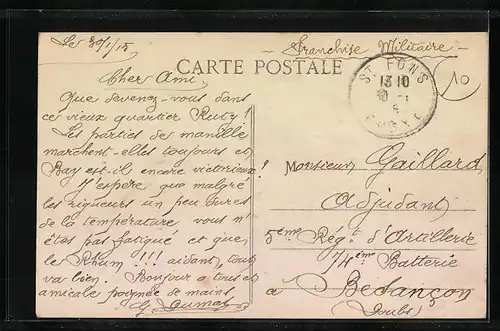 Le 30/1/15
Franchise Militaire
CARTE POSTALE
ST FONS
13 10
30 -1
RHONE
10
Cher Ami,
Que devenez-vous dans
ce vieux quartier Ruty!
Les parties de manille
marchent-elles toujours et
Bay est-il encore victorieux!
J'espère que malgré
les rigueurs un peu fortes
de la température vous n'
êtes pas fatigué et que
le Rhum!!! aidant, tout
va bien. Bonjour à tous et
amicale poignée de mains
Monsieur Gaillard
Adjudant
5ème Régt d'Artillerie
74ème Batterie
à Besançon
Doubs